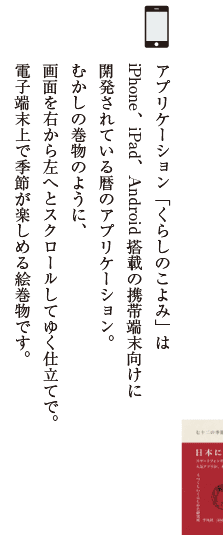 アプリケーション「くらしのこよみ」は
iPhone、iPad、Android 搭載の携帯端末向けに
開発されている暦のアプリケーション。
むかしの巻物のように、
画面を右から左へとスクロールしてゆく仕立てで。
電子端末上で季節が楽しめる絵巻物です。
日本に